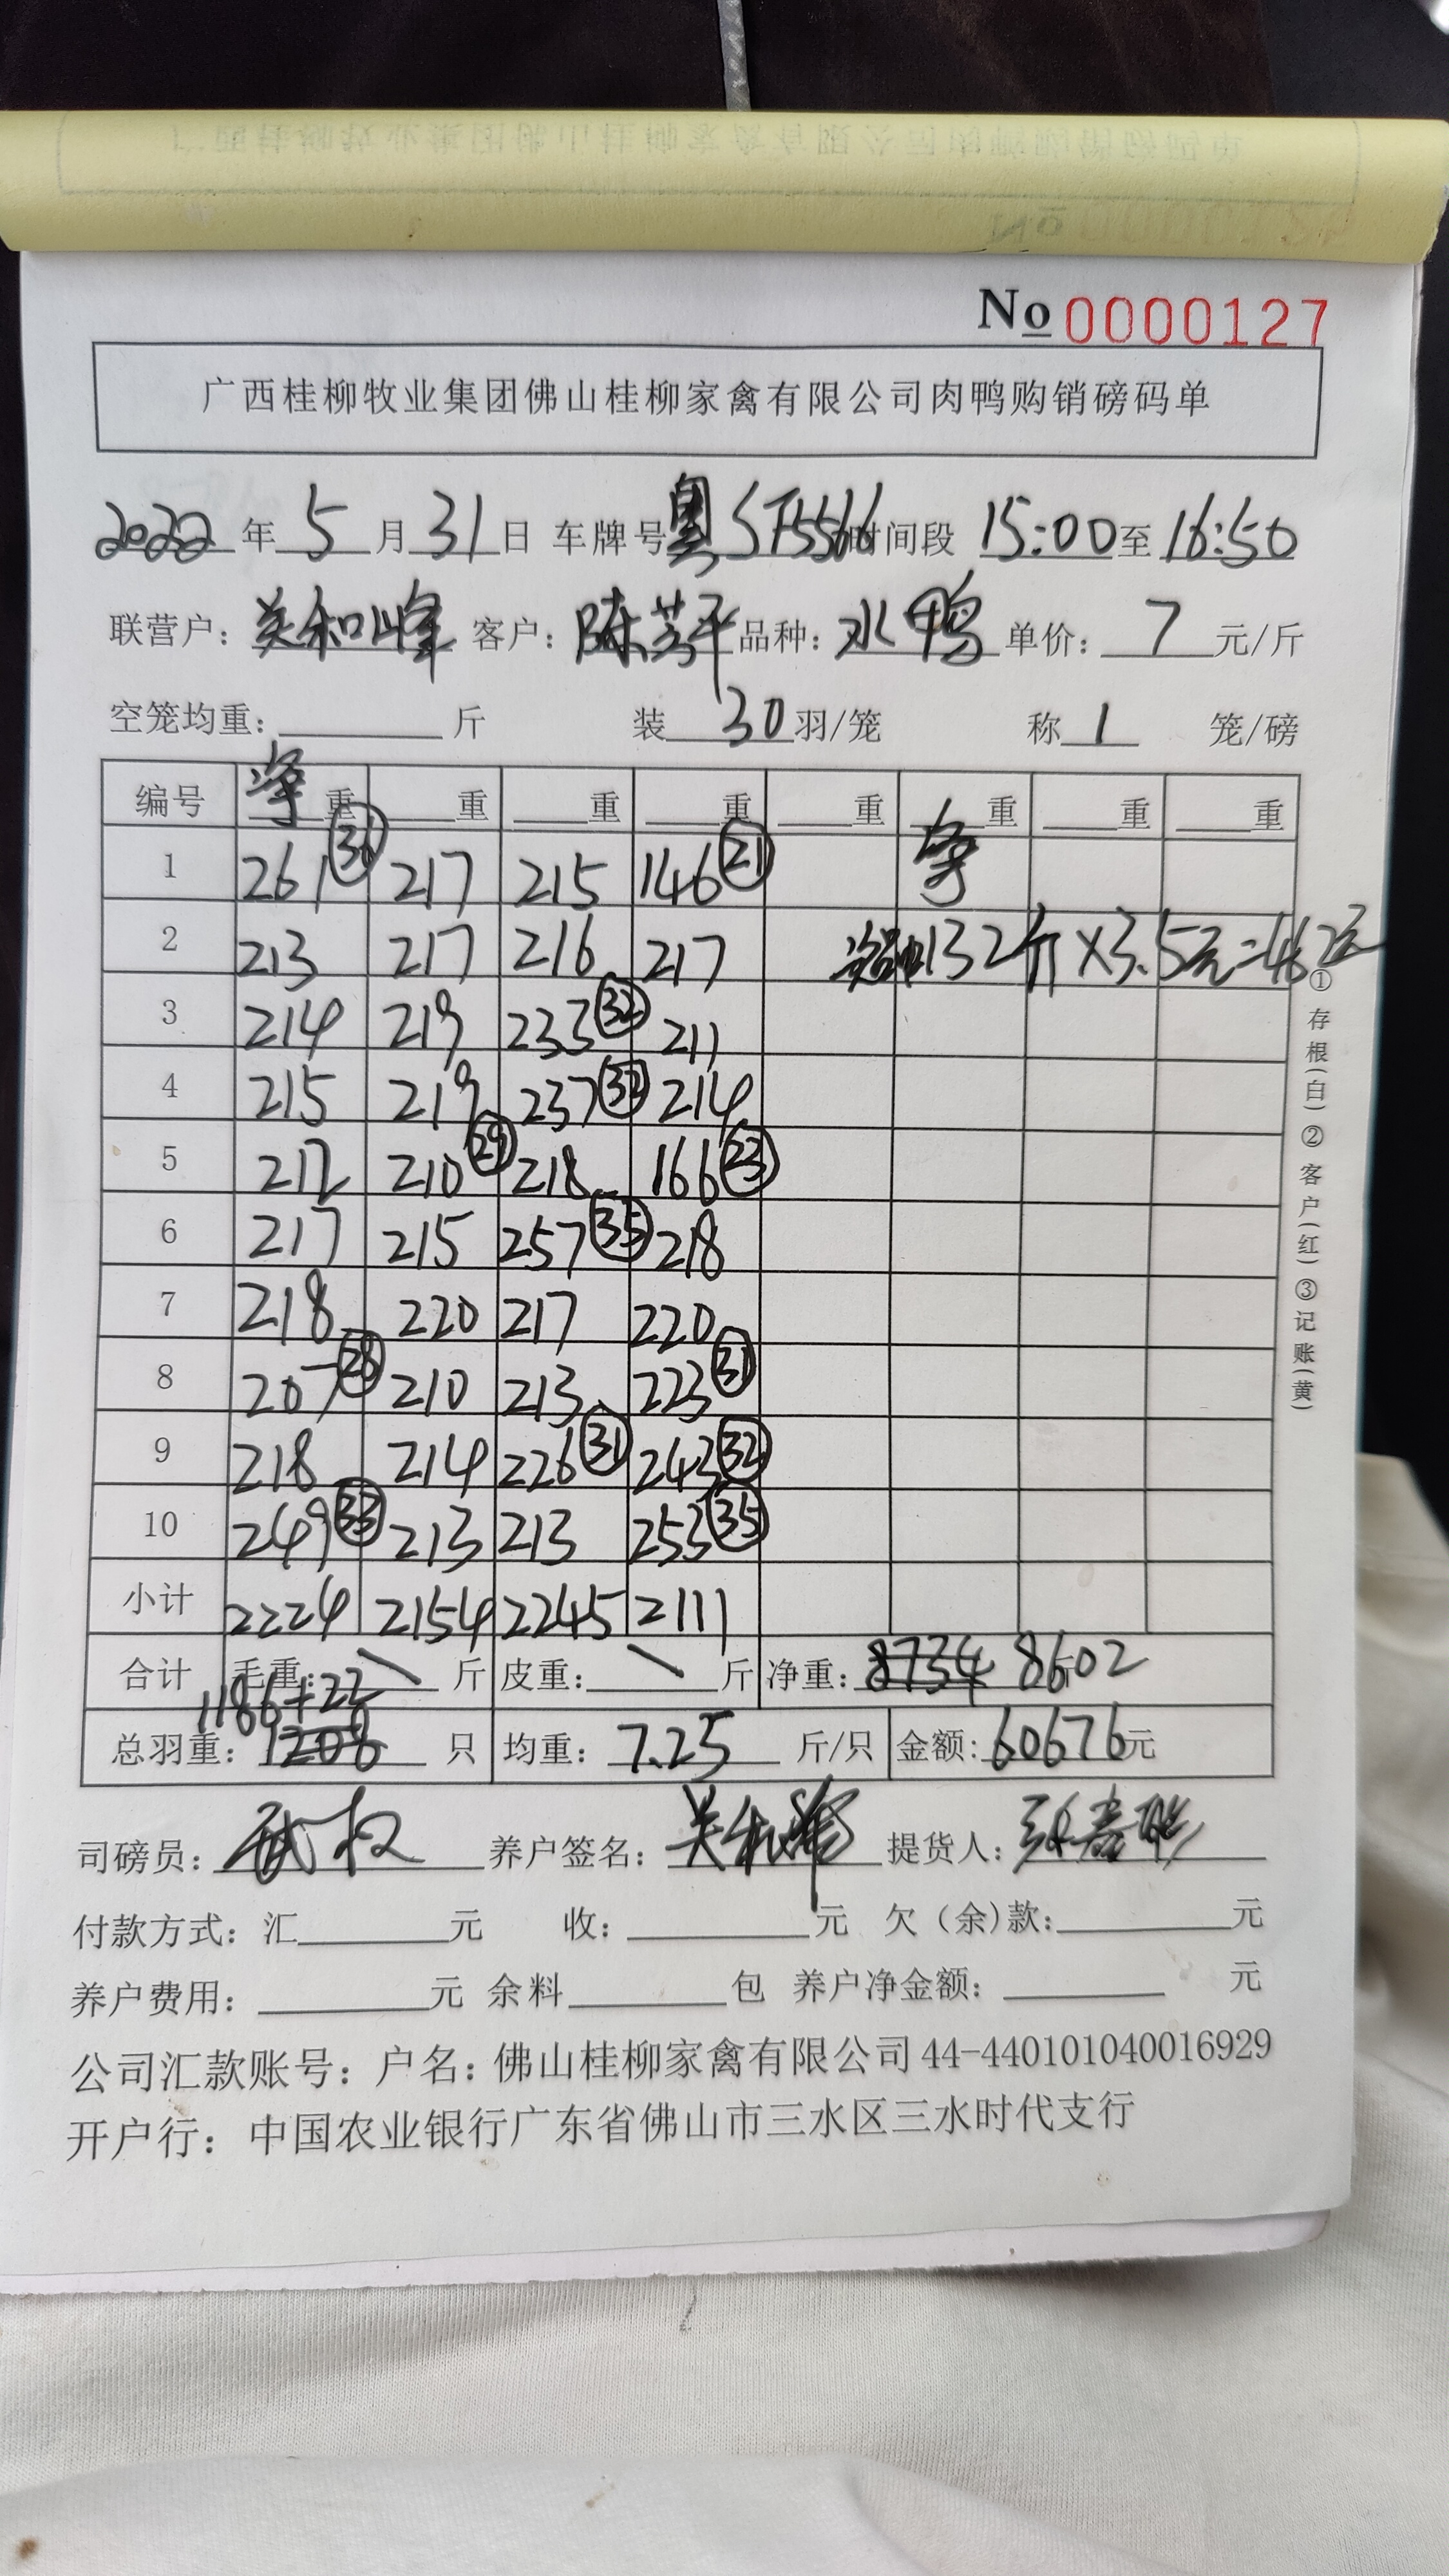 No 0000127
广西桂柳牧业集团佛山桂柳家禽有限公司肉鸭购销磅码单
2022年5月31日 车牌号粤ST5566时间段 15:00至16:50
联营户: 关和峰 客户: 陈芳平 品种: 水鸭 单价: 7 元/斤
空笼均重: 斤 装 30 羽/笼 称 1 笼/磅
编号 净重 重 重 重 重 重 重 重
1 261 36 217 215 146 21 净
2 213 217 216 217 132斤×3.5元=462元
3 214 219 235 32 211
4 215 219 237 32 214
5 212 210 29 218 166 23
6 217 215 257 35 218
7 218 220 217 220
8 207 28 210 213 223 31
9 218 214 226 31 243 32
10 249 33 213 213 253 35
小计 2224 2154 2245 2111
合计 毛重: \ 斤 皮重: \ 斤 净重: 8734 8602
1186+22
总羽重: 1208 只 均重: 7.25 斤/只 金额: 60676元
司磅员: 养户签名: 关和峰 提货人:
付款方式: 汇 元 收: 元 欠(余)款: 元
养户费用: 元 余料 包 养户净金额: 元
公司汇款账号: 户名: 佛山桂柳家禽有限公司 44-440101040016929
开户行: 中国农业银行广东省佛山市三水区三水时代支行
①存根(白)②客户(红)③记账(黄)